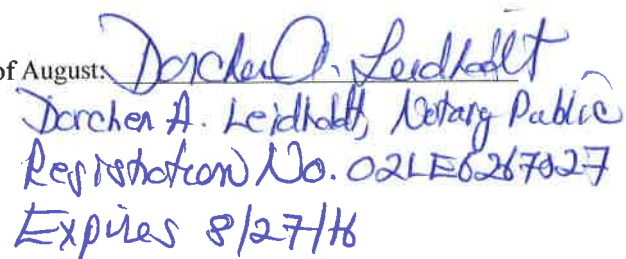 of August: Dorchen A. Leidholdt
Dorchen A. Leidholdt, Notary Public
Registration No. 02LE6267027
Expires 8/27/16